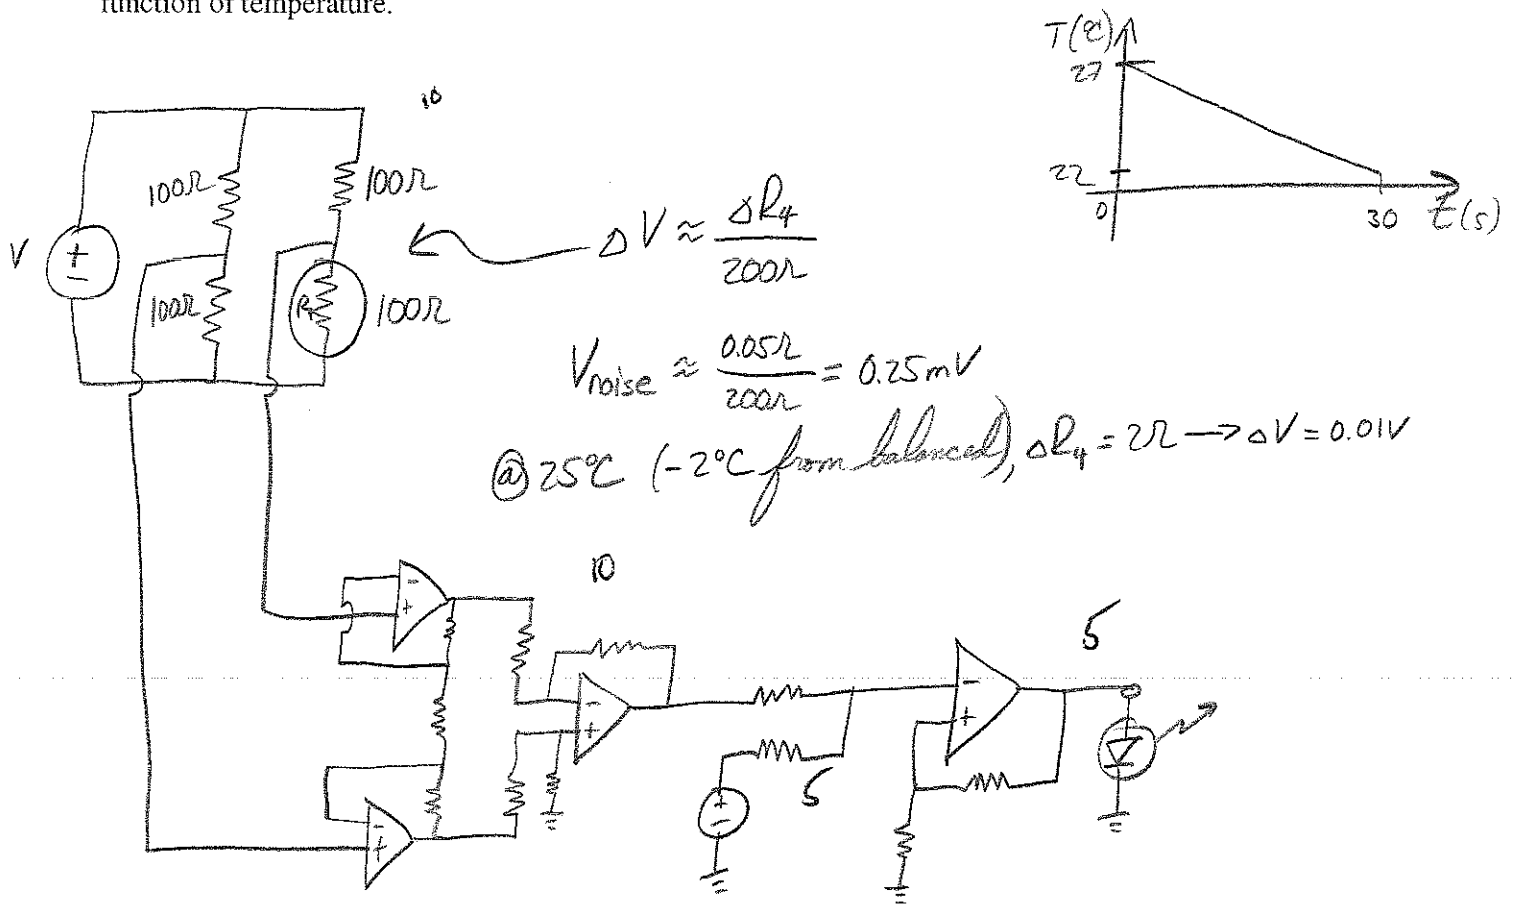 function of temperature.
T(℃)
27
22
0
30
t(s)
10
100Ω
100Ω
V
+
−
100Ω
R₄
100Ω
ΔV ≈ ΔR₄ / 200Ω
Vnoise ≈ 0.05Ω / 200Ω = 0.25mV
@ 25°C (-2°C from balanced), ΔR₄ = 2Ω → ΔV = 0.01V
10
−
+
5
−
+
−
+
5
+
−
−
+